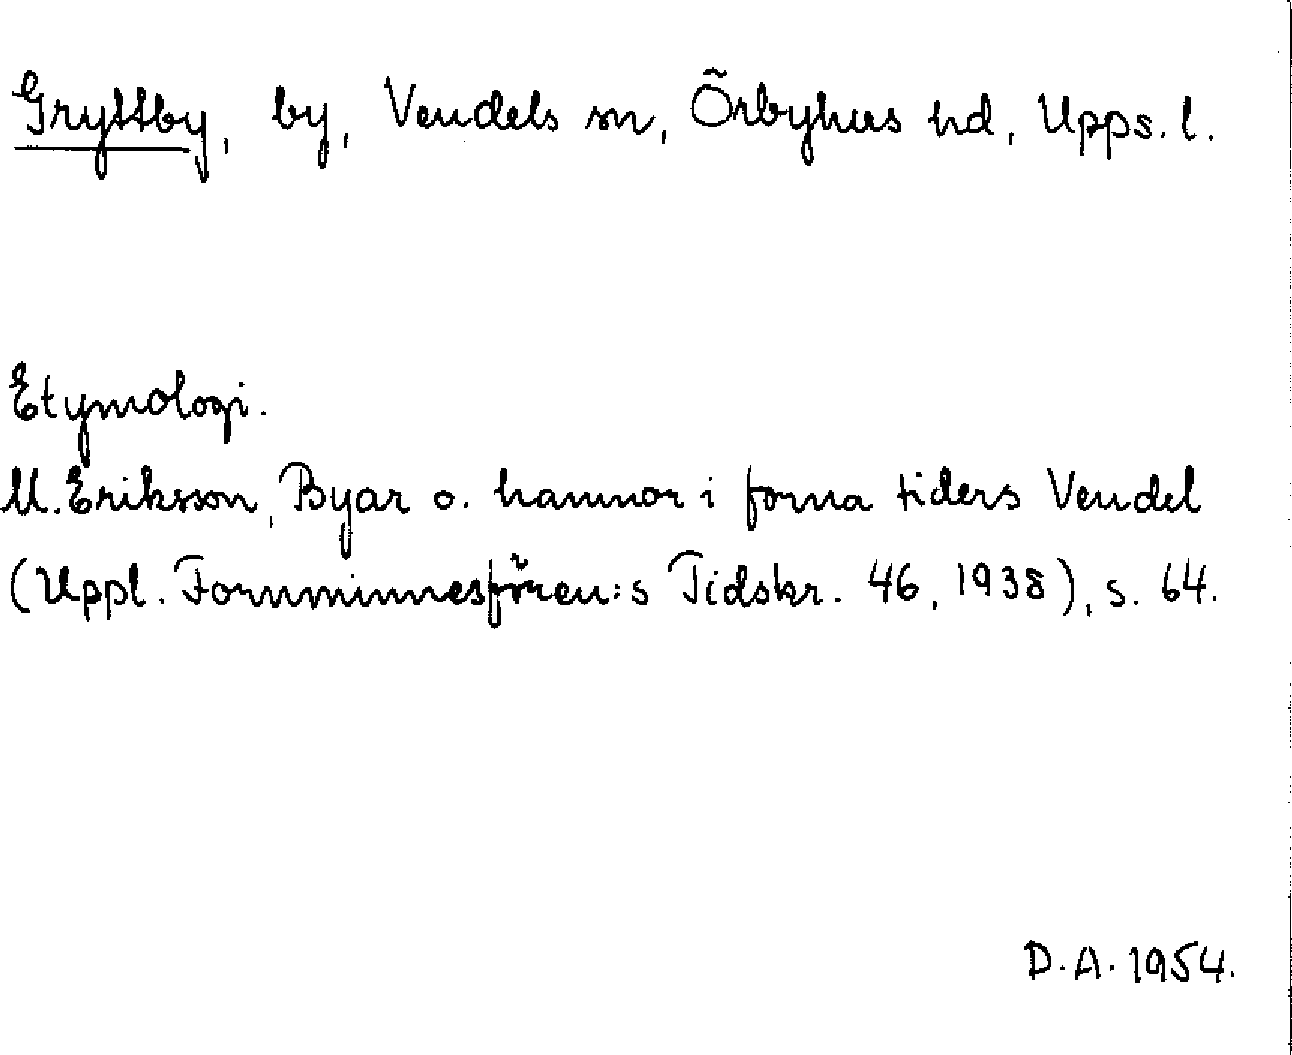 Gryttby, by, Vendels sn, Örbyhus hd, Upps. l.
Etymologi.
M. Eriksson, Byar o. hamnar i forna tiders Vendel
(Uppl. Fornminnesfören:s Tidskr. 46, 1938), s. 64.
D. A. 1954.